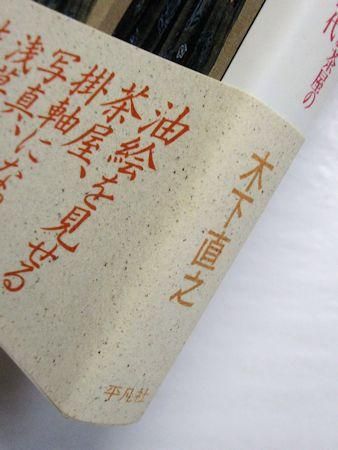 茶屋の
代
木下直之
平凡社
油絵を見せる
茶屋、
掛軸にな
写真、
浅